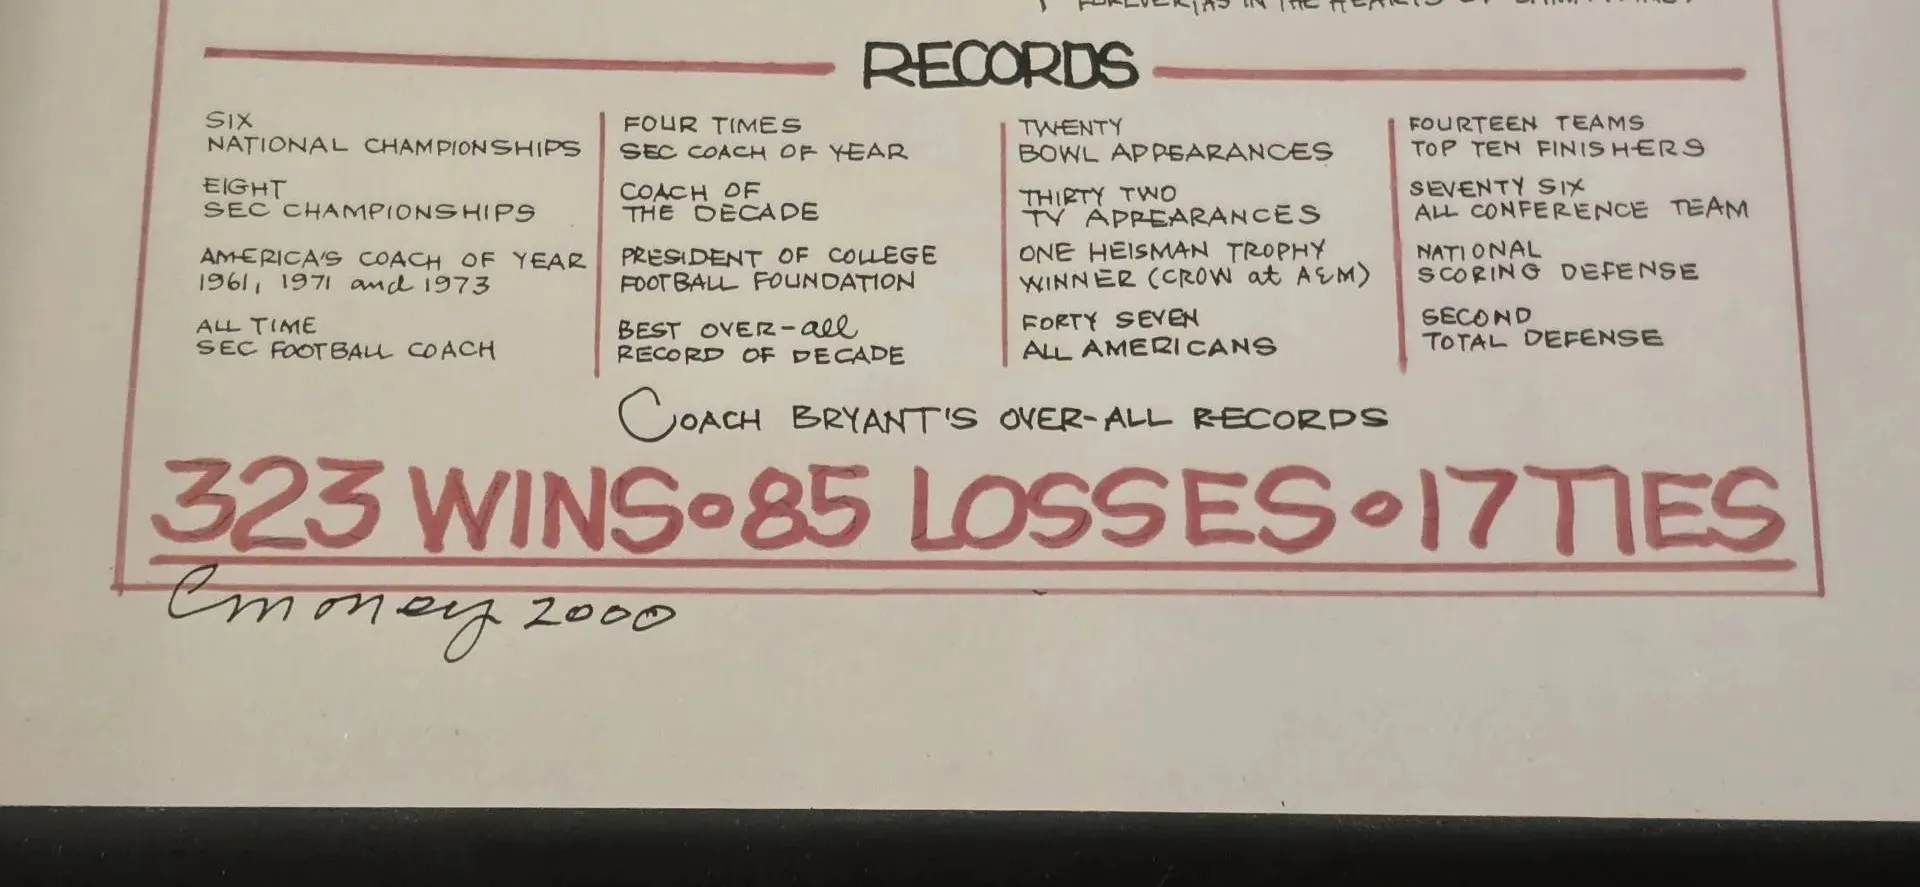 FOREVER, AS IN THE HEARTS OF
RECORDS
SIX
NATIONAL CHAMPIONSHIPS
EIGHT
SEC CHAMPIONSHIPS
AMERICA'S COACH OF YEAR
1961, 1971 and 1973
ALL TIME
SEC FOOTBALL COACH
FOUR TIMES
SEC COACH OF YEAR
COACH OF
THE DECADE
PRESIDENT OF COLLEGE
FOOTBALL FOUNDATION
BEST OVER-all
RECORD OF DECADE
TWENTY
BOWL APPEARANCES
THIRTY TWO
TV APPEARANCES
ONE HEISMAN TROPHY
WINNER (CROW at A&M)
FORTY SEVEN
ALL AMERICANS
FOURTEEN TEAMS
TOP TEN FINISHERS
SEVENTY SIX
ALL CONFERENCE TEAM
NATIONAL
SCORING DEFENSE
SECOND
TOTAL DEFENSE
COACH BRYANT'S OVER-ALL RECORDS
323 WINS•85 LOSSES•17 TIES
Cmoney 2000